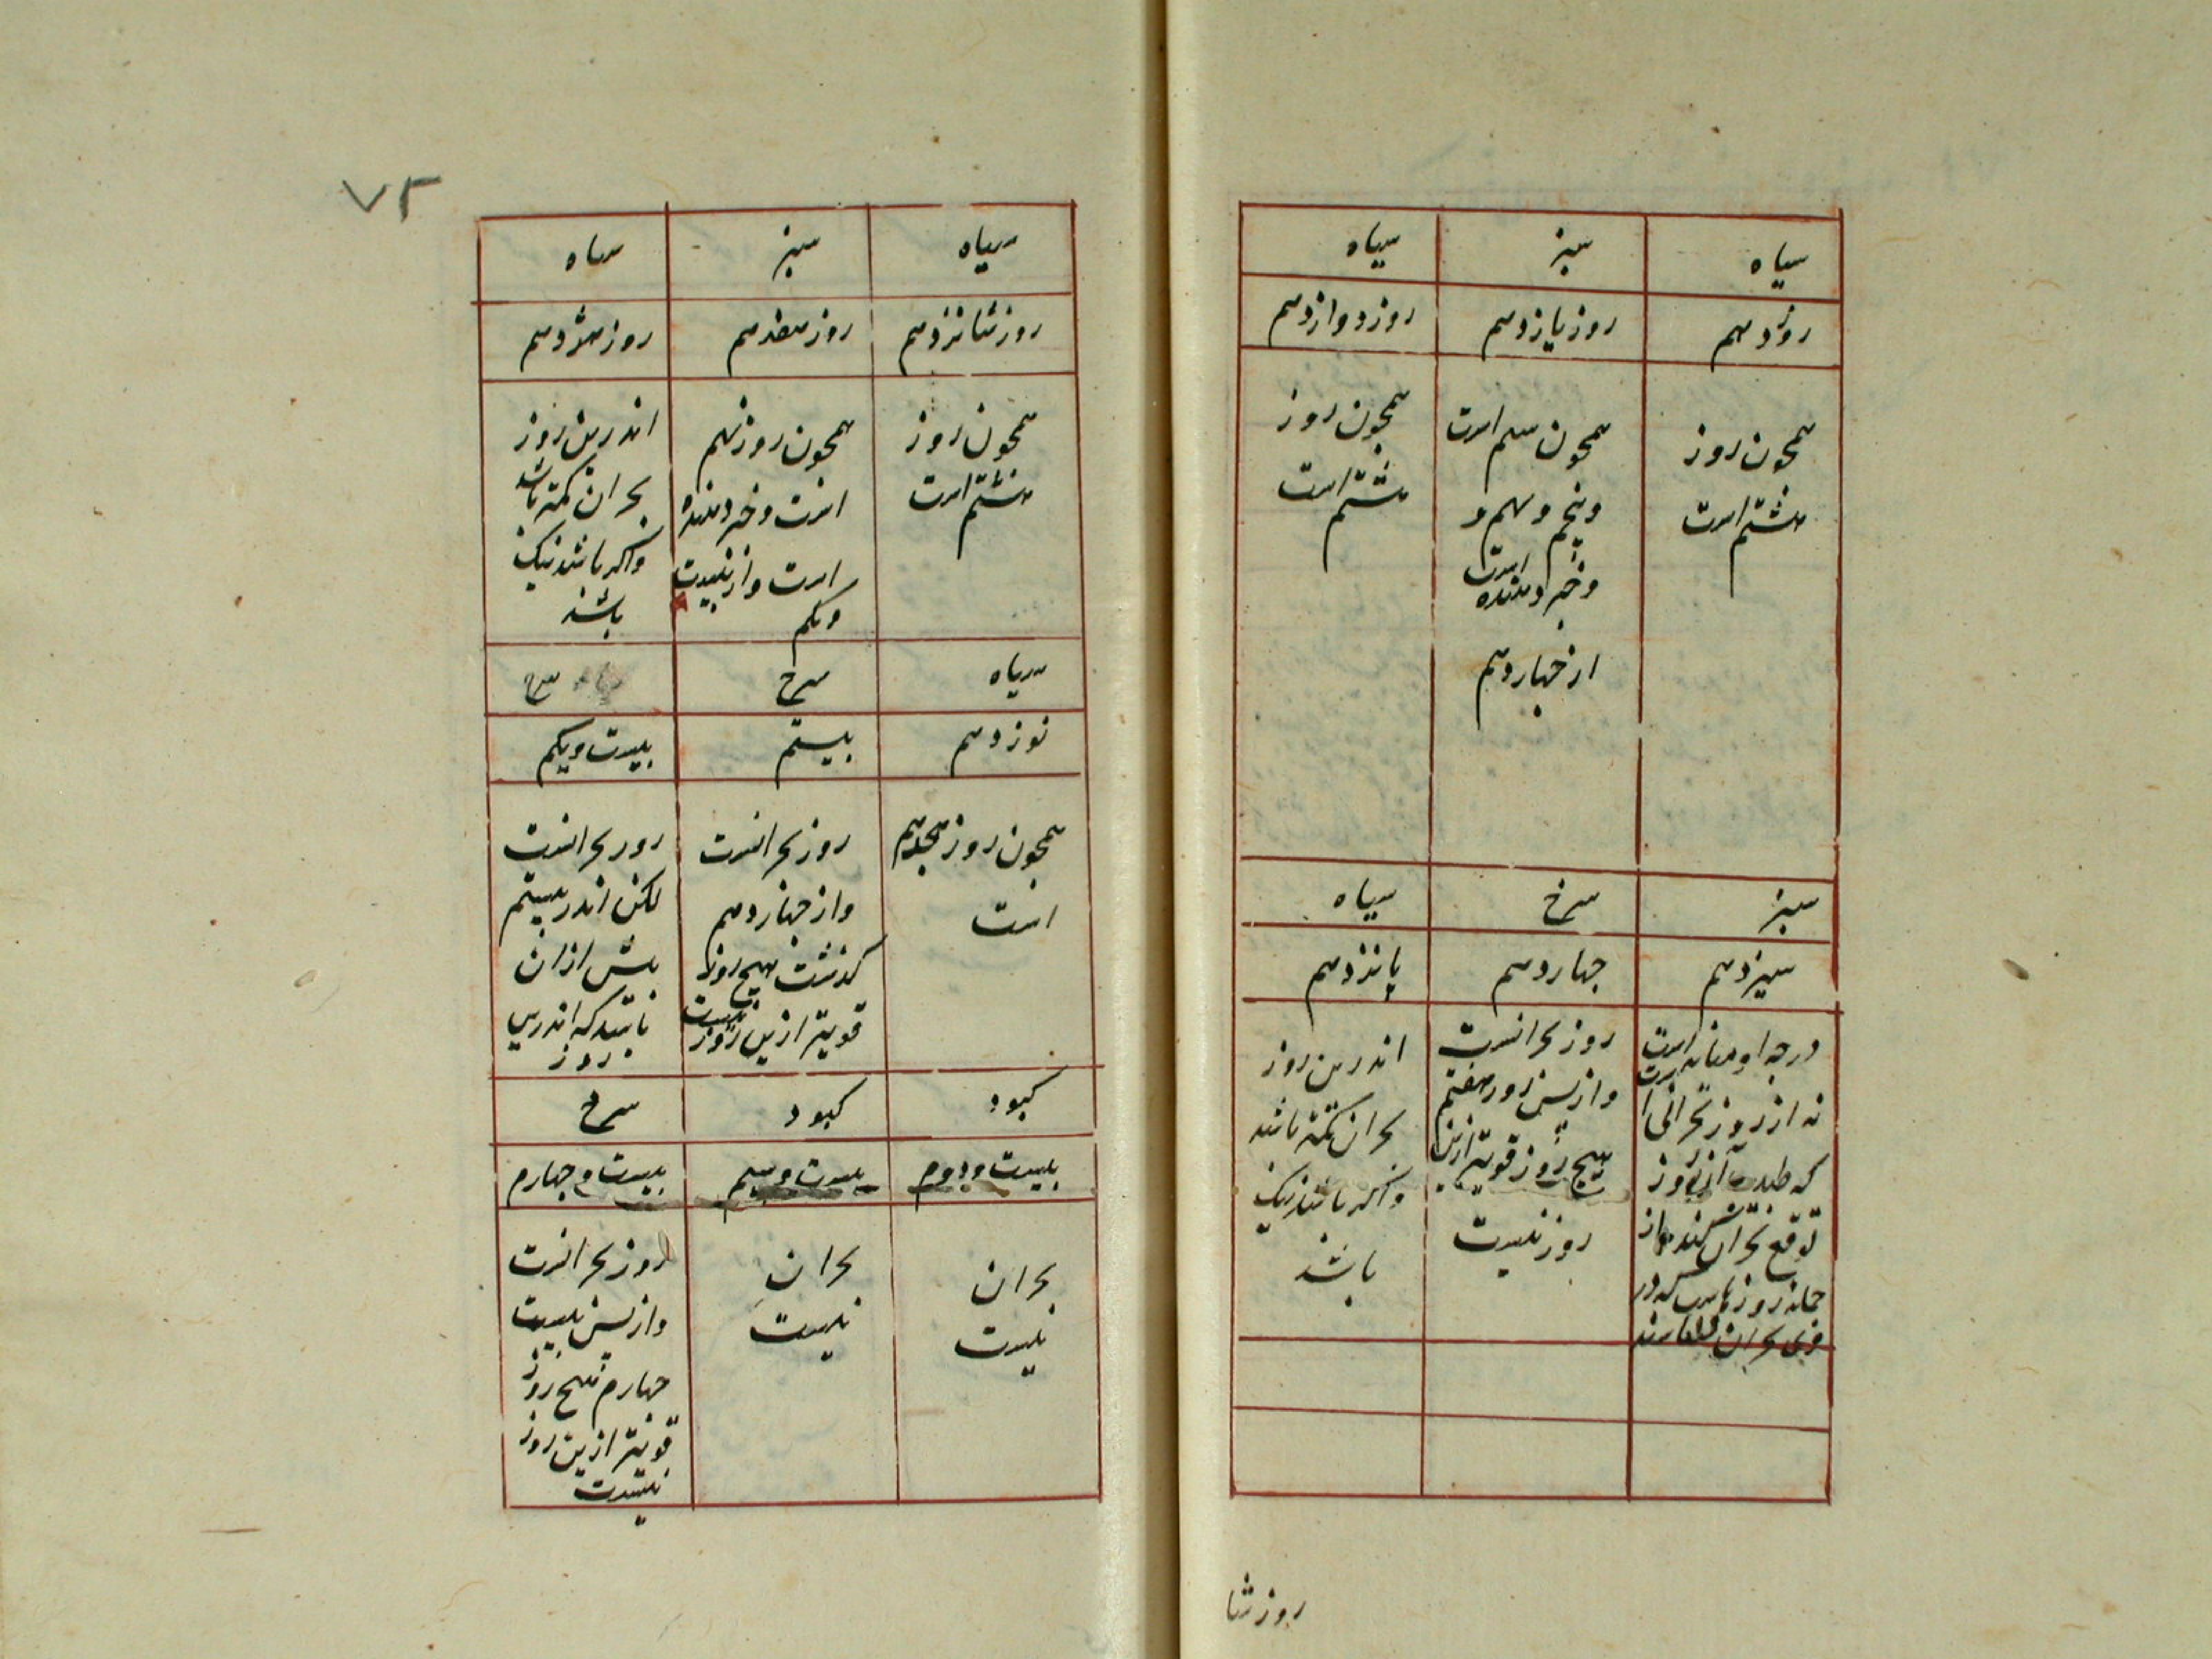 سیاه
سبز
سیاه
روز دهم
روز یازدهم
روز دوازدهم
همچون روز
هشتم است
همچون سیم است
و پنجم و نهم و
و خبر دهنده است
از چهاردهم
همچون روز
هشتم است
سبز
سرخ
سیاه
سیزدهم
چهاردهم
پانزدهم
درجه او میانه است
نه از روز بحرانی است
که طبیب از روز
توقع بحران کند و از
جمله روزها که در
وی بحران
روز بحرانست
و از پس روز هفتم
هیچ روز قویتر ازین
روز نیست
اندرین روز
بحران کمتر باشد
و اگر باشد نیک
باشد
روز شا
۷۲
سیاه
سبز
سیاه
روز شانزدهم
روز هفدهم
روز هژدهم
همچون روز
هشتم است
همچون روز نهم
است و خبر دهنده
است و از بیست
و یکم
اندرین روز
بحران کمتر باشد
و اگر باشد نیک
باشد
سیاه
سرخ
سرخ
نوزدهم
بیستم
بیست و یکم
همچون روز هجدهم
است
روز بحرانست
و از چهاردهم
گذشت هیچ روز
قویتر ازین روز نیست
روز بحرانست
لکن اندر بیستم
بیش از آن
باشد که اندرین
روز
کبود
کبود
سرخ
بیست و دوم
بیست و سیم
بیست و چهارم
بحران
نیست
بحران
نیست
روز بحرانست
و از پس بیست
چهارم هیچ روز
قویتر ازین روز
نیست